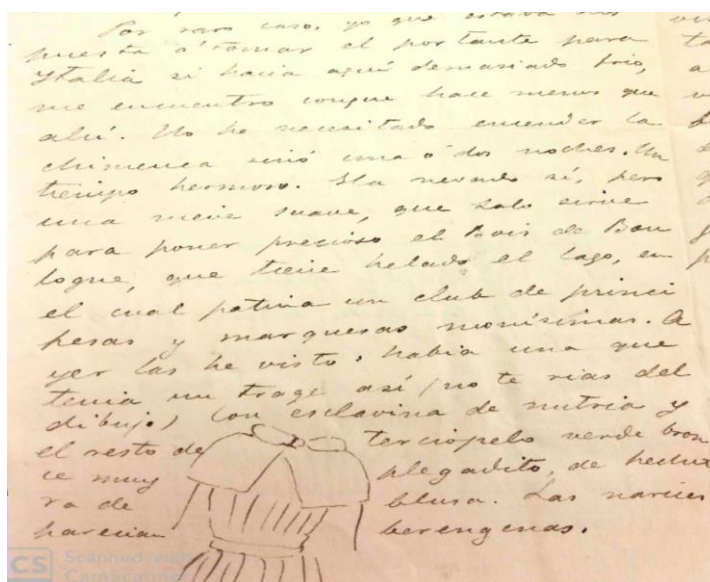 Por raro caso, yo que estaba dis
puesta á tomar el portante para
Ytalia si hacia aquí demasiado frio,
me encuentro conque hace menos que
ahí. No he necesitado encender la
chimenea sinó una ó dos noches. Un
tiempo hermoso. Ha nevado sí, pero
una nieve suave, que solo sirve
para poner precioso el Bois de Bou
logne, que tiene helado el lago, en
el cual patina un club de princi
pesas y marquesas monísimas. A
yer las he visto; habia una que
tenia un trage así (no te rias del
dibujo) con esclavina de nutria y
el resto de terciopelo verde bron
ce muy plegadito, de hechu
ra de blusa. Las narices
parecian berengenas.
CS Scanned with
CamScanner